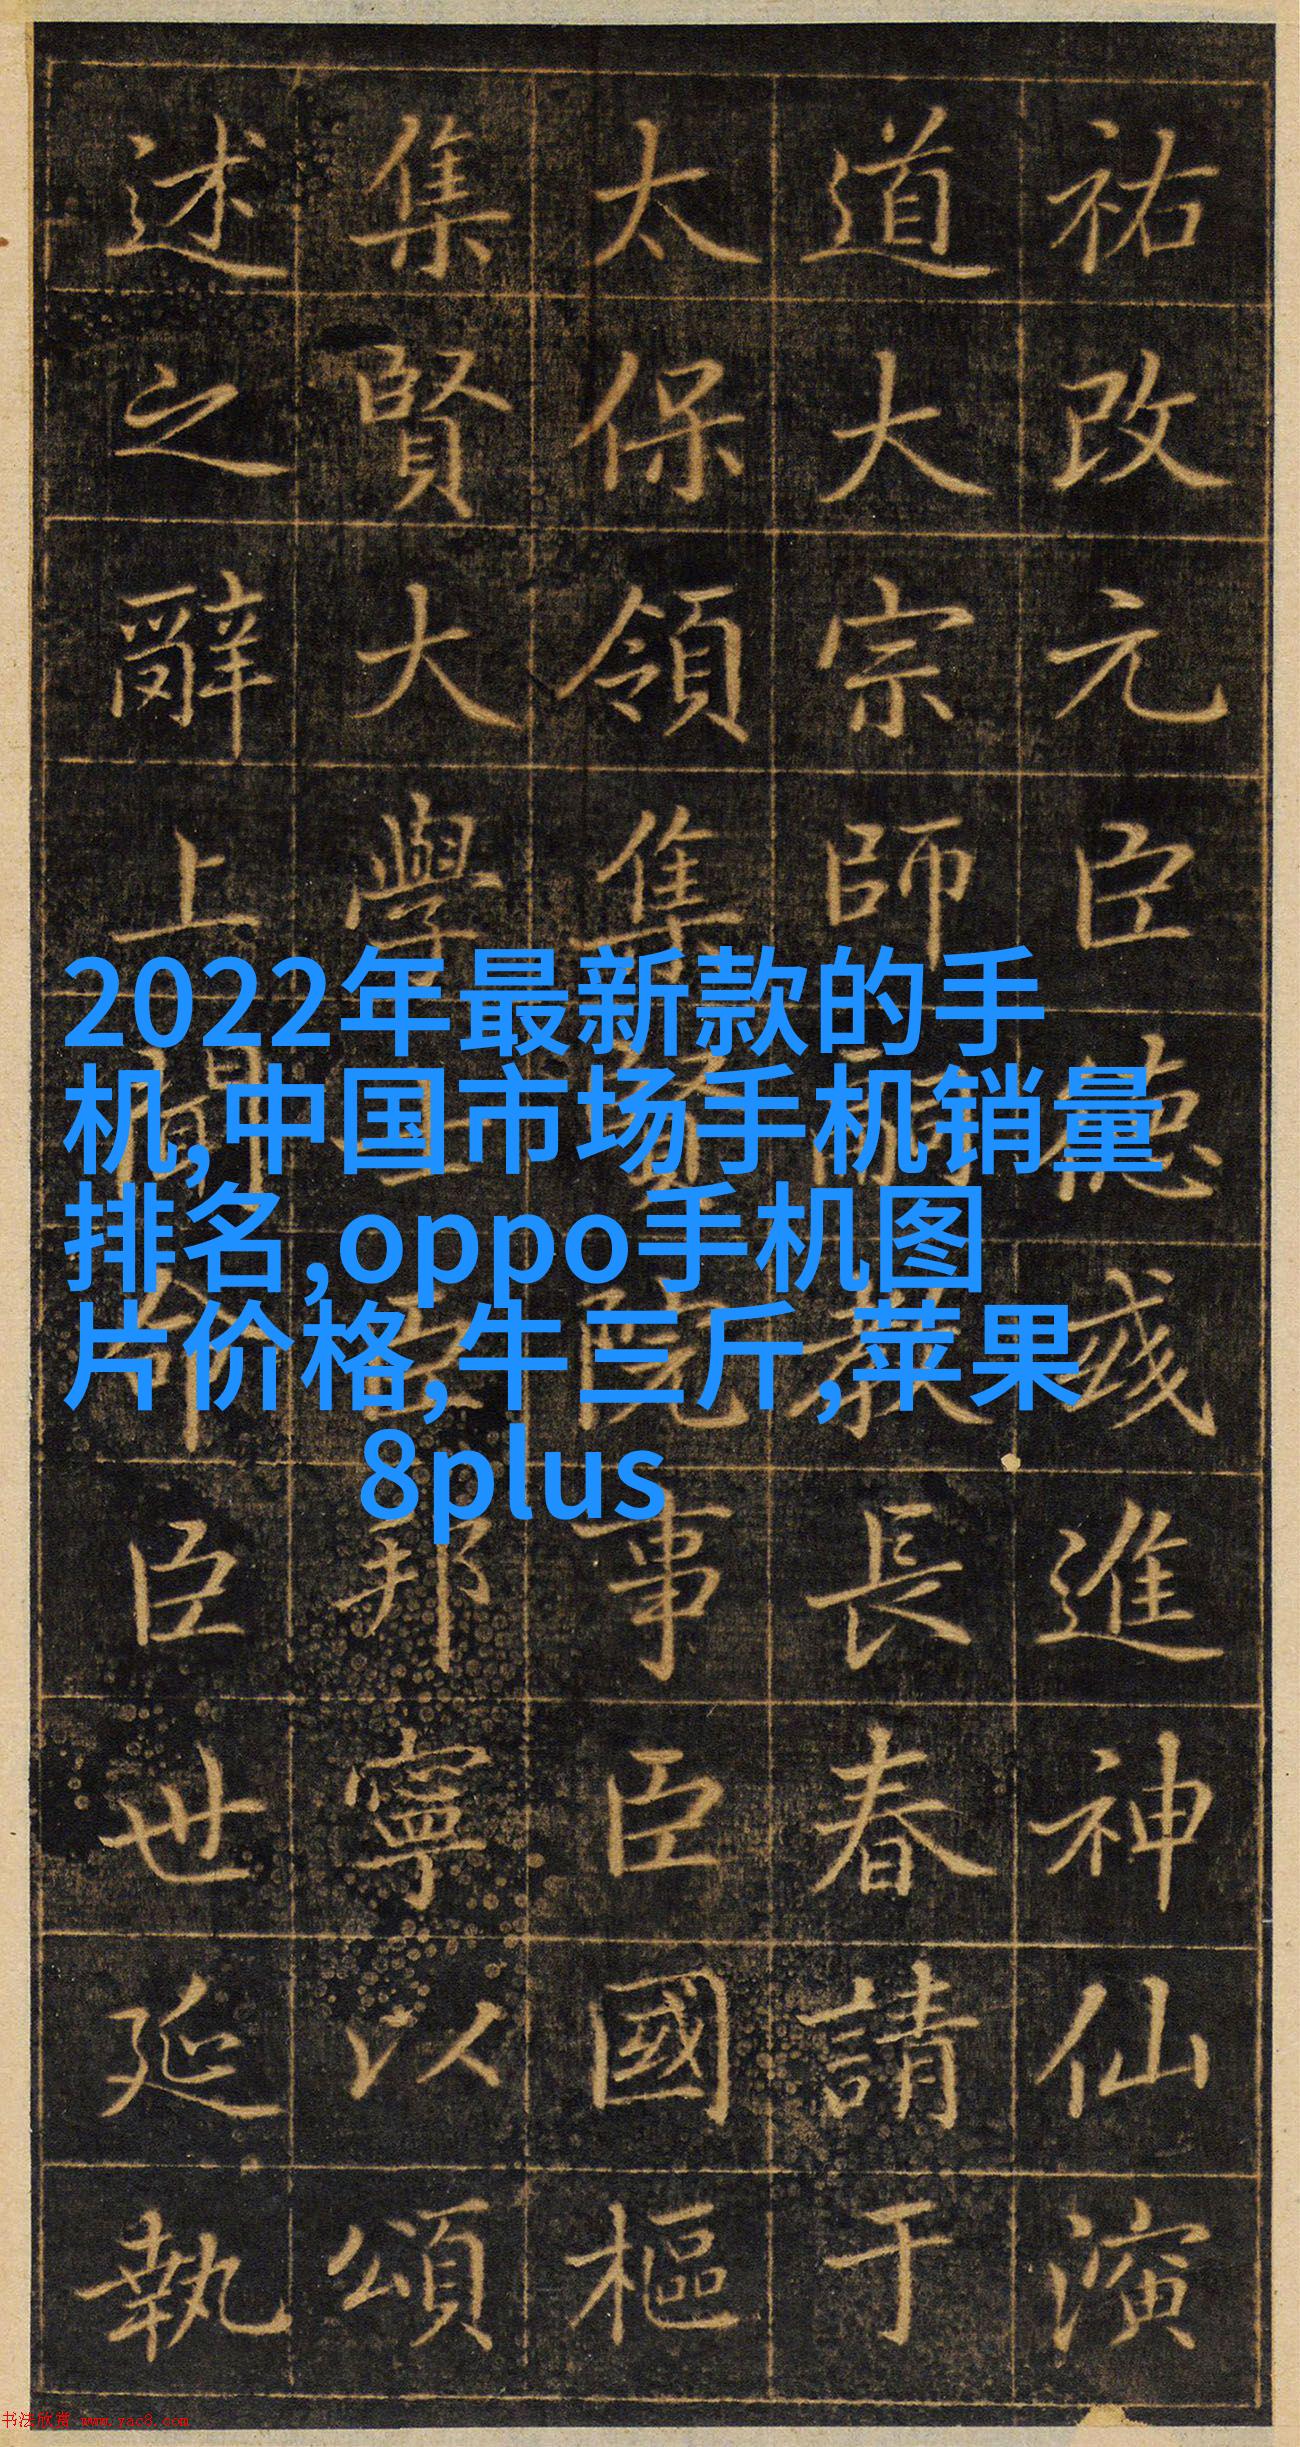 祐改元臣德彧進神仙演
道大宗師嗣教長春請于
太保領集賢院事臣國樞
集賢大學士臣邦寧以頌
述之辭上聞命臣世延執
2022年最新款的手
机,中国市场手机销量
排名,oppo手机图
片价格,牛三斤,苹果
8plus
书法欣赏 www.yac8.com